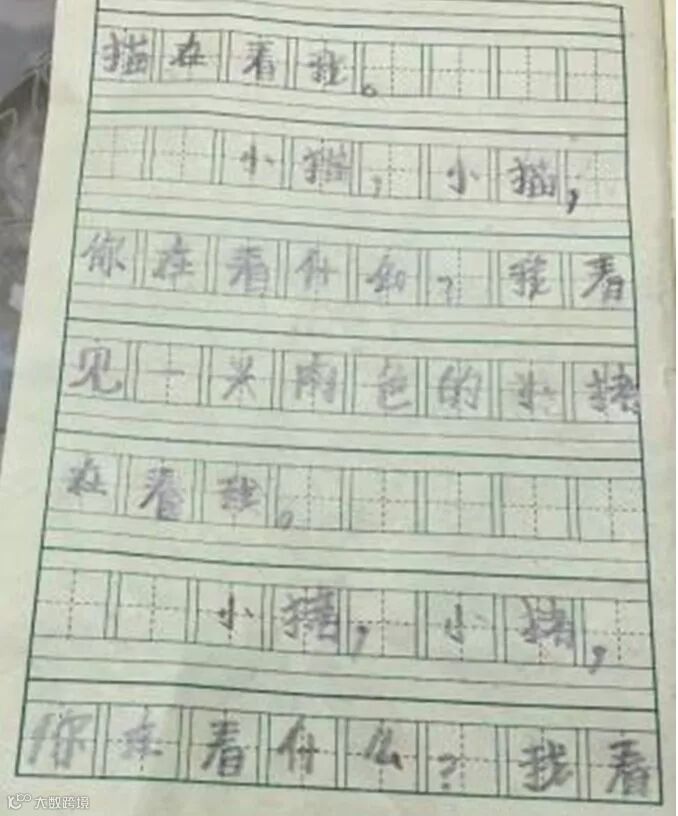 猫在看我。
小猫，小猫，
你在看什么？我看
见一只肉色的小猪
在看我。
小猪，小猪，
你在看什么？我看
大数跨境